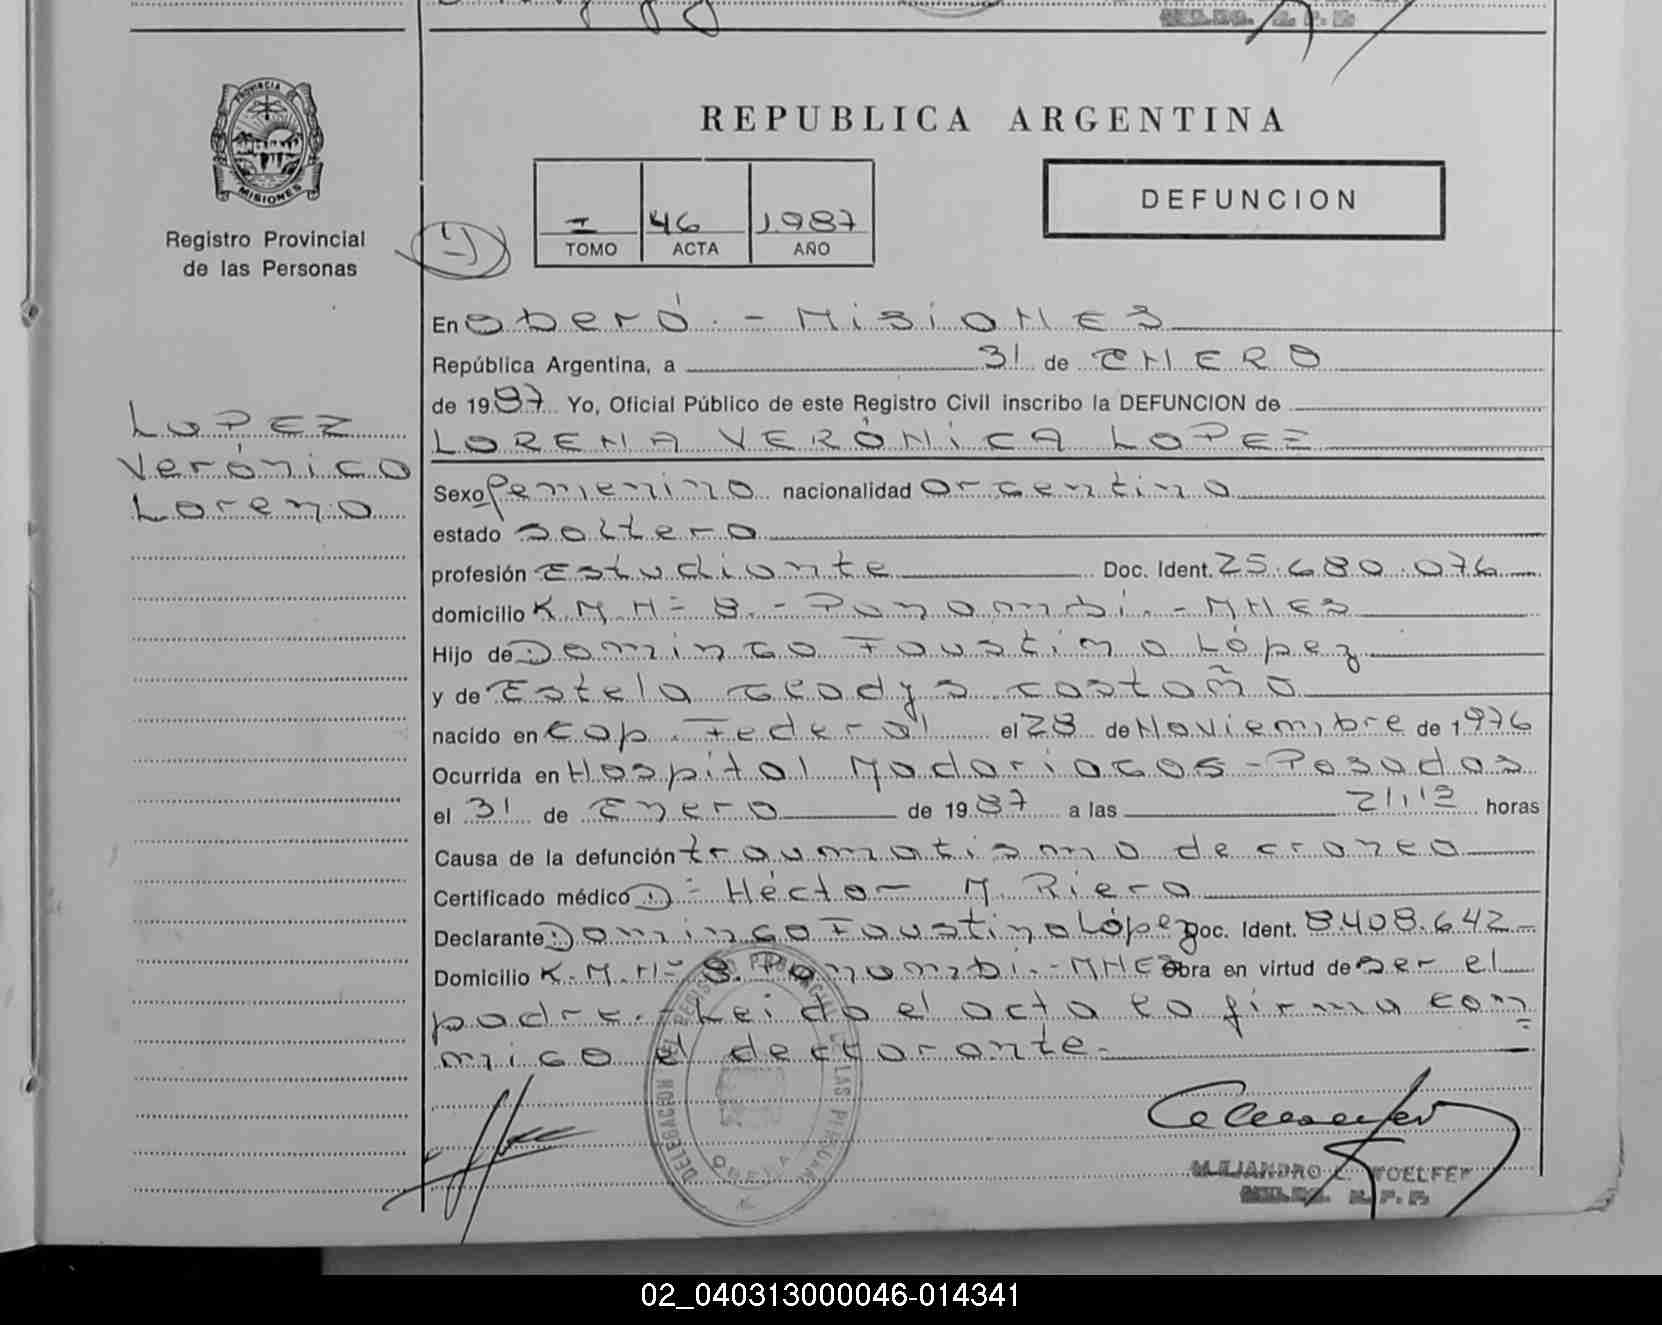 PROVINCIA DE
MISIONES
Registro Provincial
de las Personas
REPUBLICA ARGENTINA
I 46 1987
TOMO ACTA AÑO
DEFUNCION
LOPEZ
Verónica
Lorena
En Oberá - MISIONES
República Argentina, a 31 de ENERO
de 1987 Yo, Oficial Público de este Registro Civil inscribo la DEFUNCION de
LORENA VERÓNICA LOPEZ
Sexo femenino nacionalidad argentina
estado soltera
profesión Estudiante Doc. Ident. 25.680.076
domicilio K.M.Nº 8.- Panambí.- MNES
Hijo de Domingo Faustino López
y de Estela Gladys Castaño
nacido en Cap. Federal el 28 de Noviembre de 1976
Ocurrida en Hospital Madariagas - Posadas
el 31 de Enero de 1987 a las horas
Causa de la defunción traumatismo de craneo
Certificado médico Dº Héctor M. Riera
Declarante Domingo Faustino López Doc. Ident. 8.408.642-
Domicilio K.M.Nº 8. Panambí.- MNES Obra en virtud de ser el
padre.- Leida el acta la firma con
migo el declarante.-
DELEGACION DEL REGISTRO PROVINCIAL DE LAS PERSONAS
OBERA
02_040313000046-014341